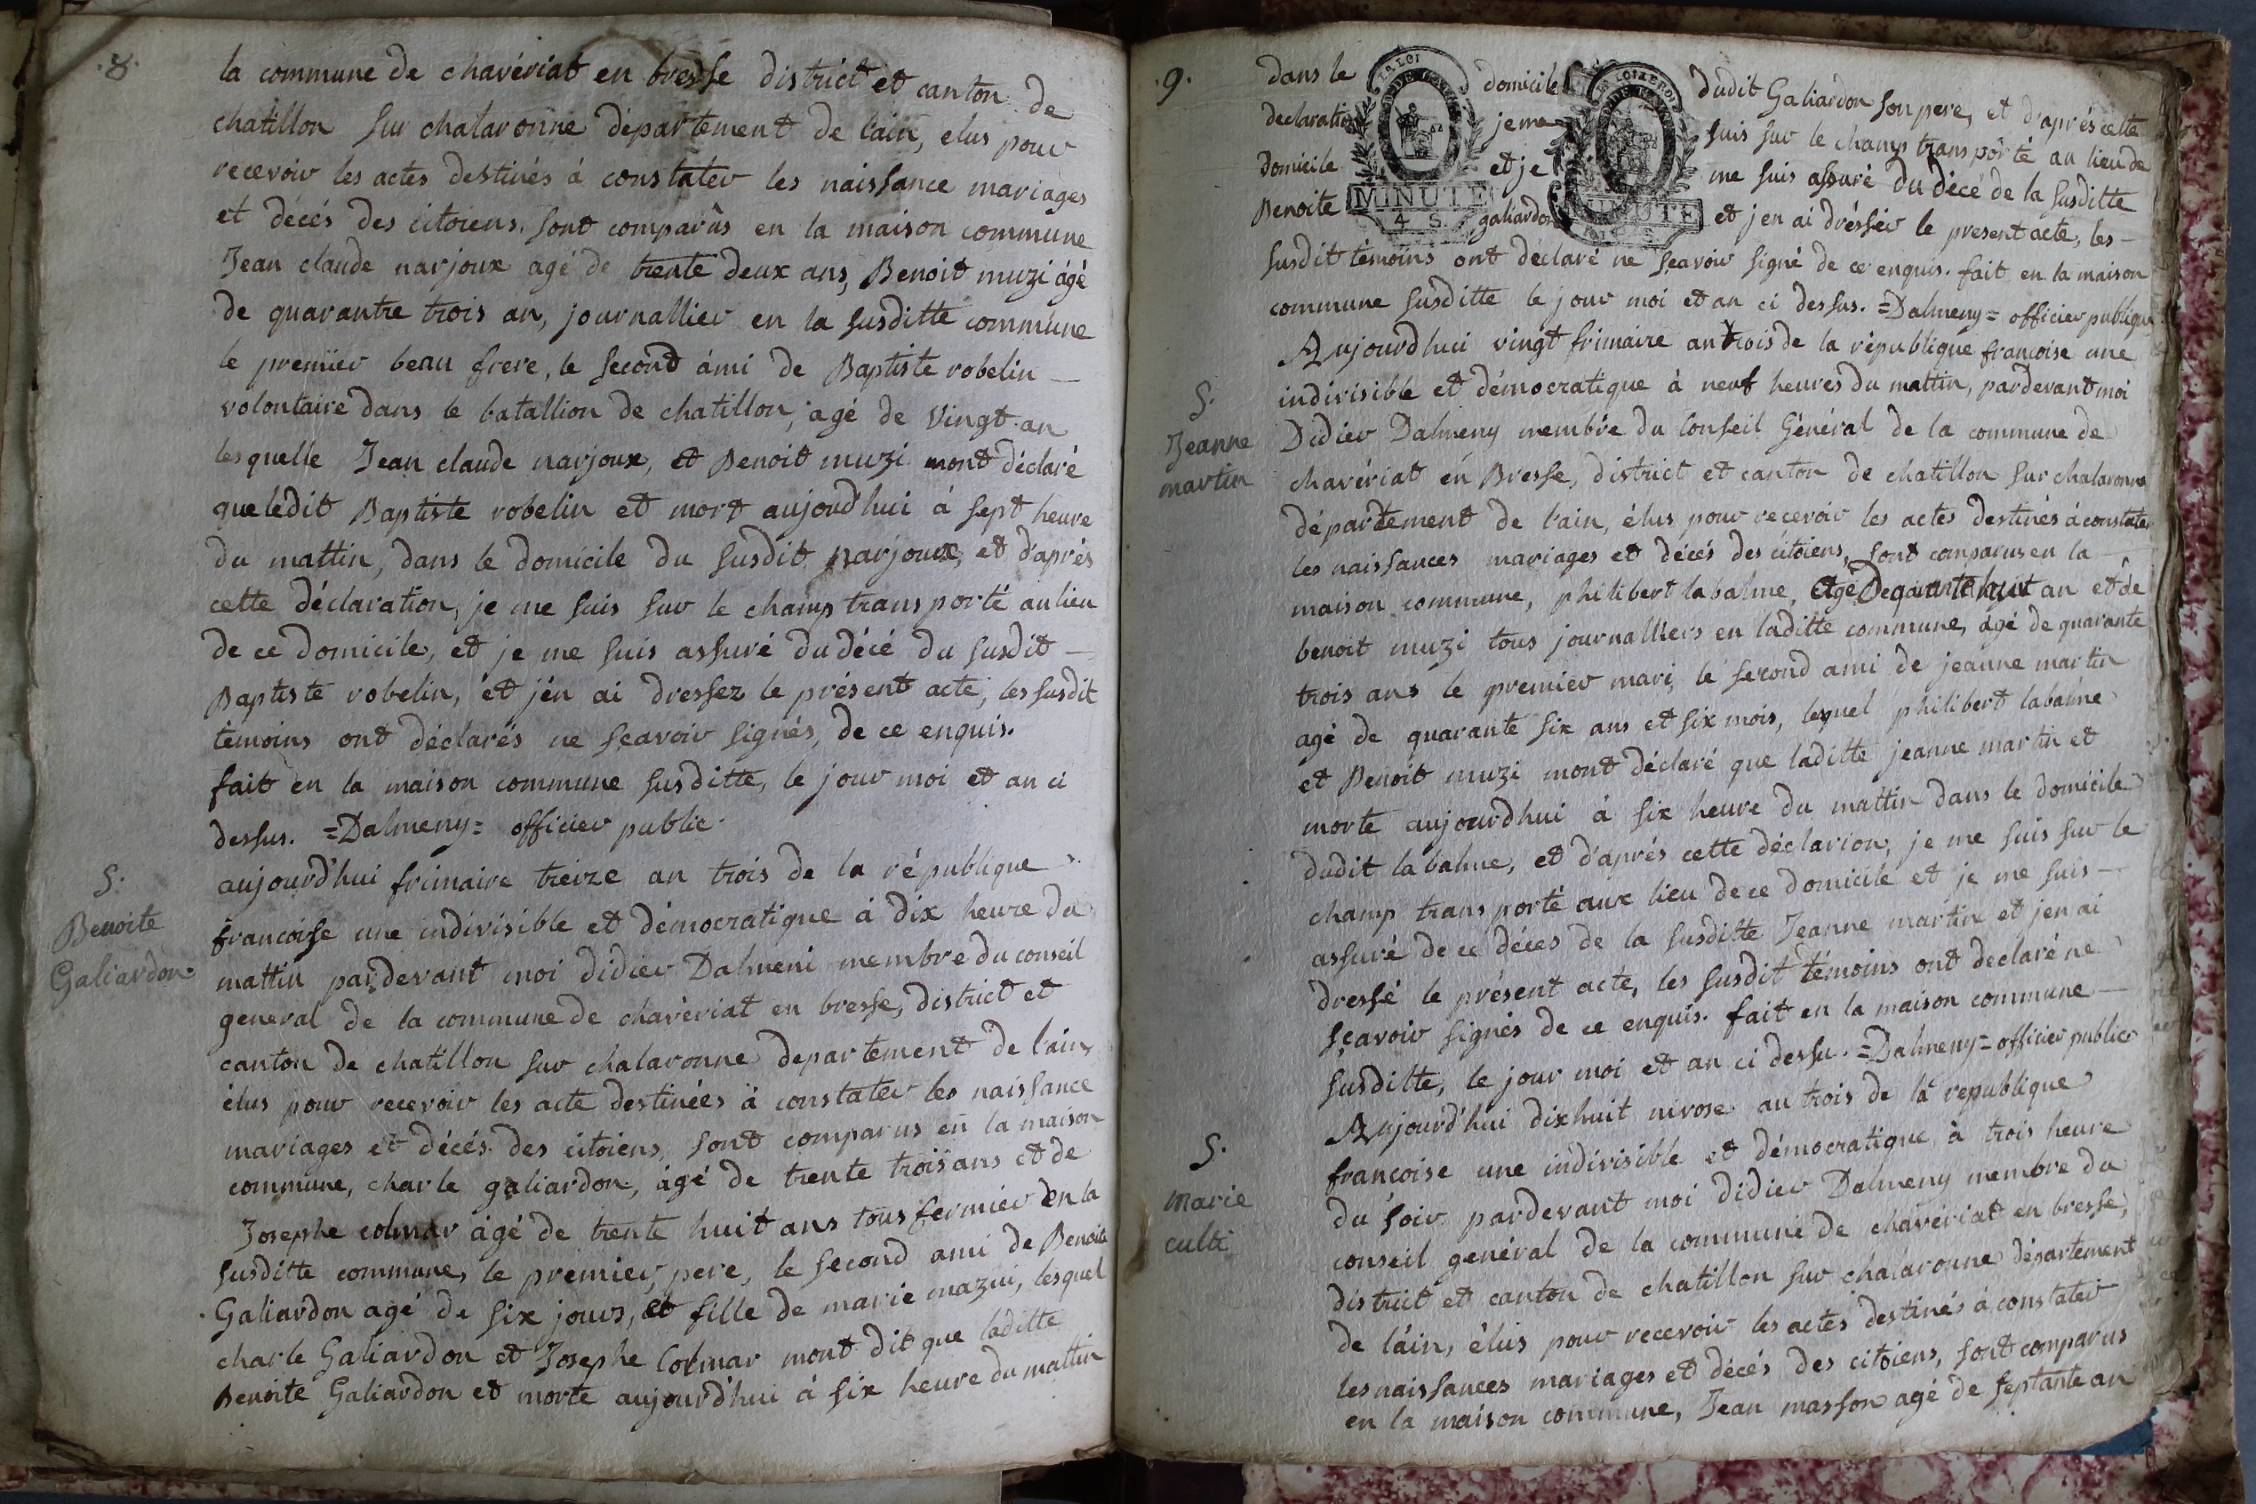 .8.
la commune de chavériat en bresse district et canton de
chatillon sur chalaronne département de lain, elus pour
recevoir les actes destinés á constater les naissance mariages
et décés des citoiens. sont comparûs en la maison commune
Jean claude narjoux agé de trente deux ans, Benoit muzi ágé
de quarantre trois an, journallier en la susditte commune
le premiier beau frere, le second ámi de Baptiste robelin
volontaire dans le batallion de chatillon, agé de vingt an
lesquelle Jean claude narjoux, et Benoit muzi mont déclaré
que lédit Baptiste robelin et mort aujourdhui á sept heure
du mattin, dans le domicile du susdit narjoux, et d'aprés
cette déclaration, je me suis sur le champ transporté au lieu
de ce domicile, et je me suis assuré du décé du susdit
Baptiste robelin, et j'én ai dressez le présent acte, les susdit
témoins ont déclarés ne sçavoir signés, de ce enquis.
fait en la maison commune susditte, le jour moi et an ci
dessus. =Dalmeny= officier public.
S.
Benoite
Galiardon
aujourd'hui frimaire treize an trois de la république
francoise une indivisible et démocratique á dix heure du
mattin pardevant moi didier Dalmeni membre du conseil
general de la commune de chavériat en bresse, district et
canton de chatillon sur chalaronne departement de l'ain,
élus pour recevoir les acte destinées á constater les naissance
mariages et décés des citoiens, sont comparus en la maison
commune, charle galiardon, ágé de trente trois ans et de
Josephe colmar ágé de trente huit ans tous fermier en la
susditte commune, le premier pere, le second ami de Benoite
Galiardon agé de six jours, et fille de marie mazui, lesquel
charle Galiardon et Josephe Colmar mont dit que laditte
Benoite Galiardon et morte aujourd'hui á six heure du mattin
.9.
LA LOI
LA LOI ET LE ROI
MINUTE
4 S.
MINUTE
dans le domicile dudit Galiardon son pere, et d'aprés cette
declaration je me suis sur le champ transporté au lieu de
domicile et je me suis assuré du décé de la susditte
Benoite galiardon et j en ai dréssér le present acte, les
susdit témoins ont déclaré ne sçavoir signé de ce enquis. fait en la maison
commune susditte le jour moi et an ci dessus. =Dalmeny= officier publique
S.
Jeanne
martin
Aujourdhui vingt frimaire an trois de la république francoise une
indivisible et démocratique à neuf heures du mattin, pardevant moi
Didier Dalmeny membre du Conseil Général de la commune de
chavériat en Bresse, district et canton de chatillon sur chalaronne
département de l'ain, élus pour recevoir les actes destinés á constater
les naissances mariages et décés des citoiens, sont comparus en la
maison commune, philibert labalme, agé De quarante huit an et de
benoit muzi tous journalliers en laditte commune, ágé de quarante
trois ans le premier mari, le second ami de jeanne martin
agé de quarante six ans et six mois, lequel philibert labalme
et Benoit muzi mont déclaré que laditte jeanne martin et
morte aujourdhui á six heure du mattin dans le domicile
dudit labalme, et d'aprés cette déclarion, je me suis sur le
champ transporté aux lieu de ce domicilé et je me suis
assuré de ce déces de la susditte Jeanne martin et jen ai
dressé le présent acte, les susdit témoins ont declaré ne
sçavoir signés de ce enquis. fait en la maison commune
susditte, le jour moi et an ci dessu. =Dalmeny= officier public
S.
marie
culti
Aujourd'hui dixhuit nivose an trois de la republique
francoise une indivisible et démocratique, à trois heure
du soir pardevant moi didier Dalmeny membre du
conseil genéral de la commune de chavériat en bresse,
district et canton de chatillon sur chalaronne département
de láin, élus pour recevoir les actes destinés á constater
les naissances mariages et décés des citoiens, sont comparus
en la maison commune, Jean masson agé de septante an